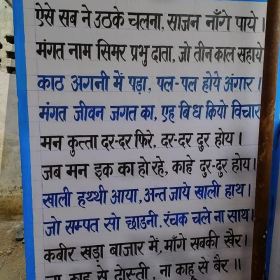 ऐसे सब ने उठके चलना, साजन नाँगे पाये ।
मंगत नाम सिमर प्रभु दाता, जो तीन काल सहाये
काठ अगनी में पड़ा, पल-पल होये अंगार ।
मंगत जीवन जगत का, एह बिध कियो विचार
मन कुत्ता दर-दर फिरे, दर-दर दुर होय ।
जब मन इक का हो रहे, काहे दुर-दुर होय ।
खाली हथ्थी आया, अन्त जाये खाली हाथ ।
जो सम्पत सों छाडनी, रंचक चले ना साथ ।
कबीर खड़ा बाजार में, माँगे सबकी खैर ।
ना काहू से दोस्ती, ना काहू से बैर ॥